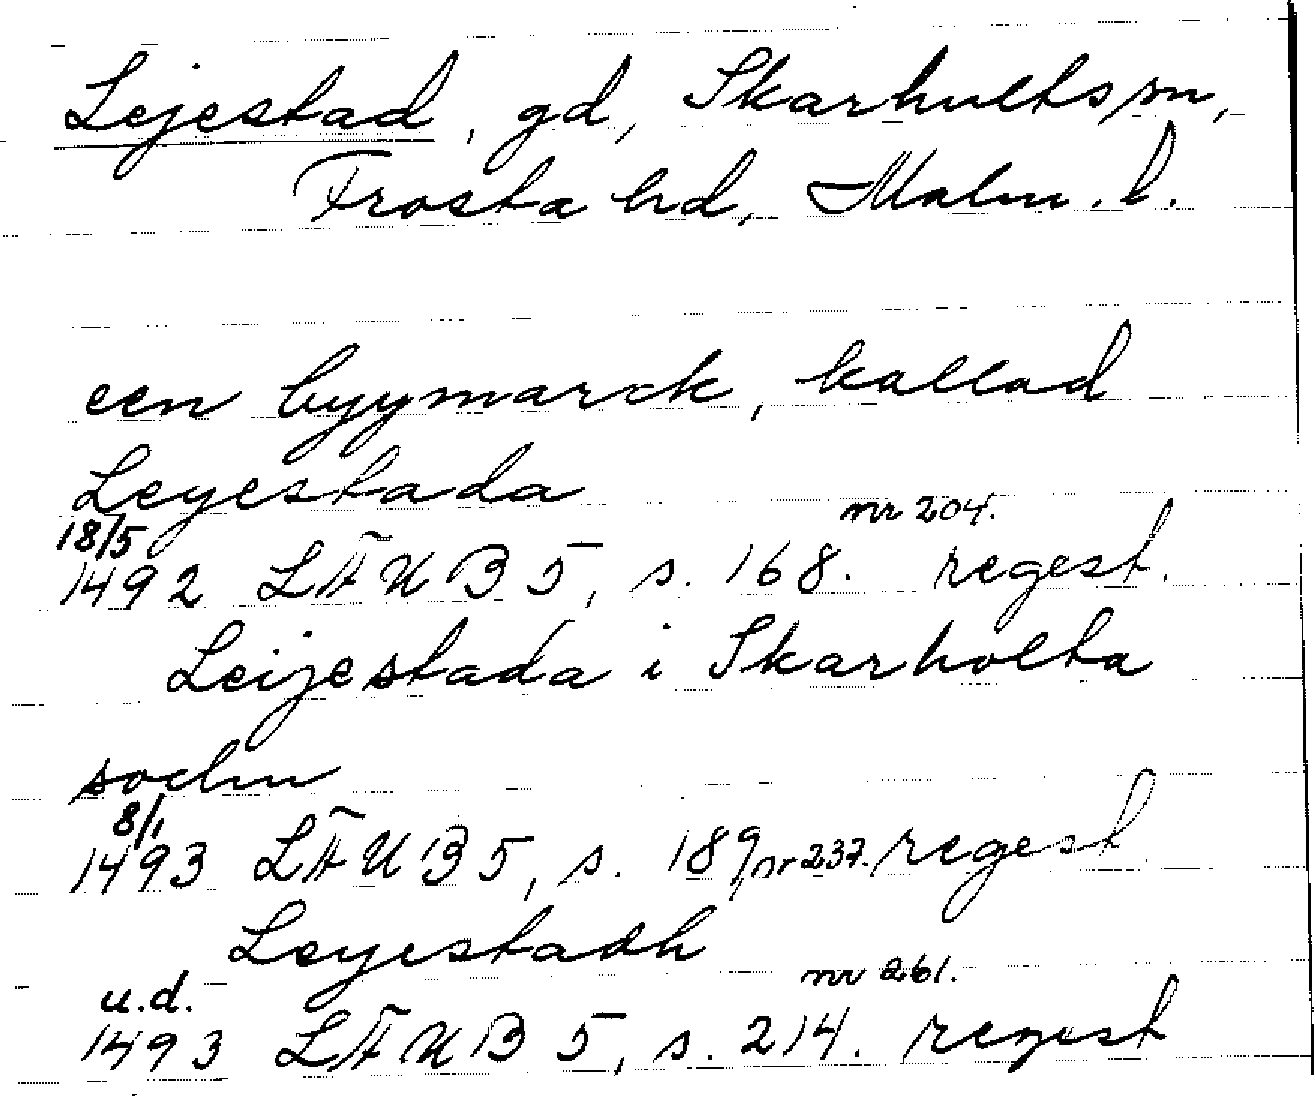 Lejestad, gd, Skarhults sn,
Frosta hd, Malm. l.
een byymarck, kallad
Leyestada
18/5 nr 204.
1492 LÄUB 5, s. 168. regest.
Leijestada i Skarholta
sochn
8/1
1493 LÄUB 5, s. 189, nr 237. regest
Leyestadh
u.d. nr 261.
1493 LÄUB 5, s. 214. regest